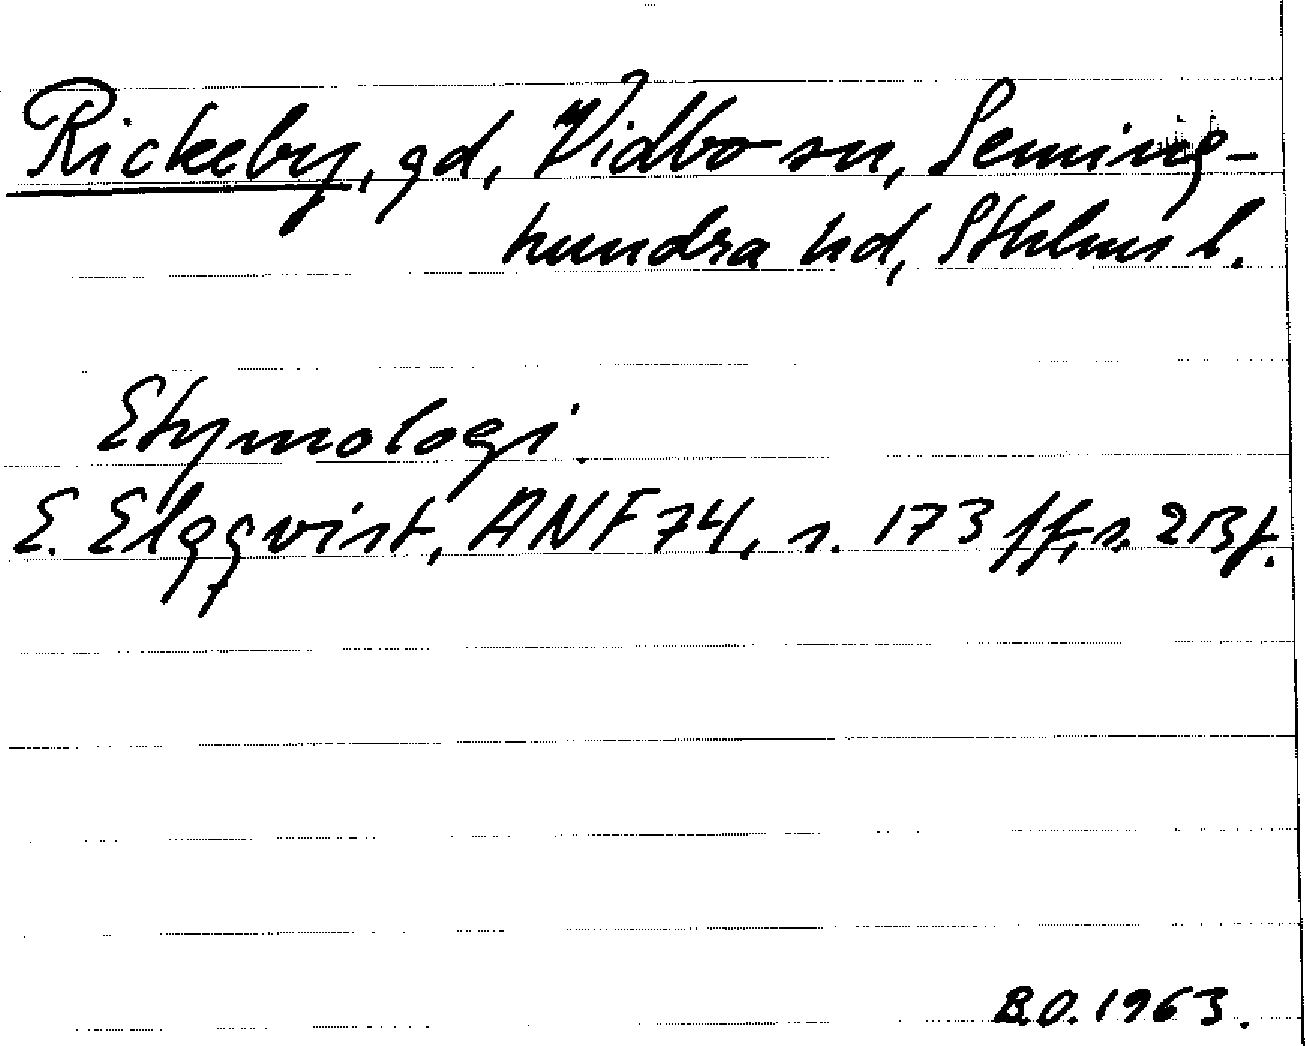 Rickeby, gd, Vidbo sn, Seming-
hundra hd, Sthlms l.
Etymologi.
E. Elgqvist, ANF 74, s. 173 ff, s. 213 f.
B.O. 1963.